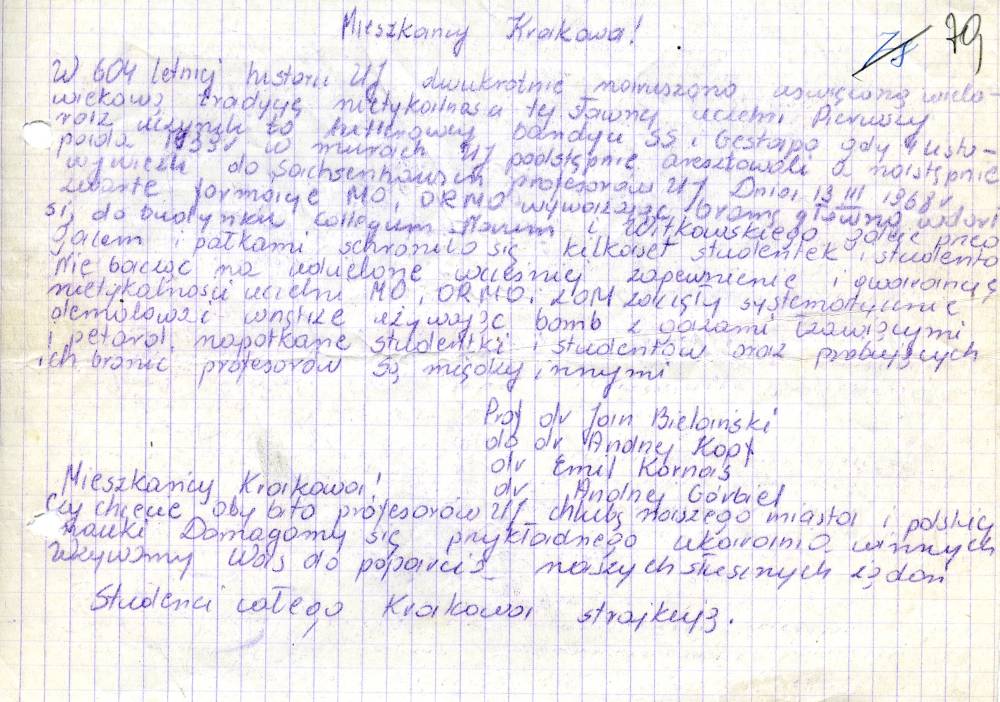 78 79
Mieszkańcy Krakowa!
W 604 letniej historii UJ dwukrotnie naruszono uświęconą wielo-
wiekową tradycję nietykalności tej sławnej uczelni Pierwszy
raz uczynili to hitlerowcy bandyci SS i Gestapo gdy listo-
pada 1939 r w murach UJ podstępnie aresztowali a następnie
wywieźli do Sachsenhausen profesorów UJ. Dnia 13 III 1968 r
zwarte formacje MO, ORMO wyważając bramę główną wdarł
się do budynku Collegium Novum i Witkowskiego gdzie przed
gazem i pałkami schroniło się kilkaset studentek i studentó
Nie bacząc na udzielone wcześniej zapewnienie i gwarancję
nietykalności uczelni MO, ORMO, ZOM zaczęły systematycznie
demolować wnętrze używając bomb z gazami łzawiącymi
i petard. napotkane studentki i studentów oraz próbujących
ich bronić profesorów Są między innymi
Prof dr Jan Bielański
do dr Andrzej Kopf
dr Emil Kornaś
dr Andrzej Górbiel
Mieszkańcy Krakowa!
Czy chcecie aby bito profesorów UJ chlubę naszego miasta i polskiej
nauki Domagamy się przykładnego ukarania winnych
Wzywamy Was do poparcia naszych słusznych żądań
Studenci całego Krakowa strajkują.